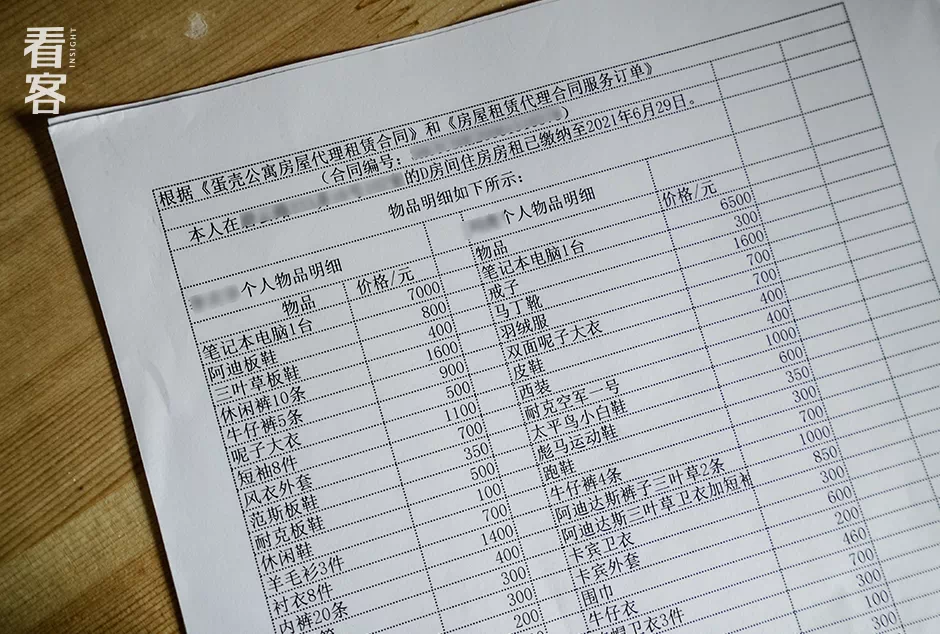 看客
INSIGHT
根据《蛋壳公寓房屋代理租赁合同》和《房屋租赁代理合同服务订单》
（合同编号： ）
本人在 的D房间住房房租已缴纳至2021年6月29日。
物品明细如下所示：
个人物品明细 个人物品明细
物品 价格/元 物品 价格/元
笔记本电脑1台 7000 笔记本电脑1台 6500
阿迪板鞋 800 戒子 300
三叶草板鞋 400 马丁靴 1600
休闲裤10条 1600 羽绒服 700
牛仔裤5条 900 双面呢子大衣 700
呢子大衣 500 皮鞋 400
短袖8件 1100 西装 400
风衣外套 700 耐克空军一号 1000
范斯板鞋 350 太平鸟小白鞋 600
耐克板鞋 500 彪马运动鞋 350
休闲鞋 100 跑鞋 300
羊毛衫3件 700 牛仔裤4条 700
衬衣8件 1400 阿迪达斯裤子三叶草2条 1000
内裤20条 400 阿迪达斯三叶草卫衣加短袖 850
300 卡宾卫衣 300
300 卡宾外套 600
200 围巾 200
牛仔衣 460
帽卫衣3件 700
300
100
300